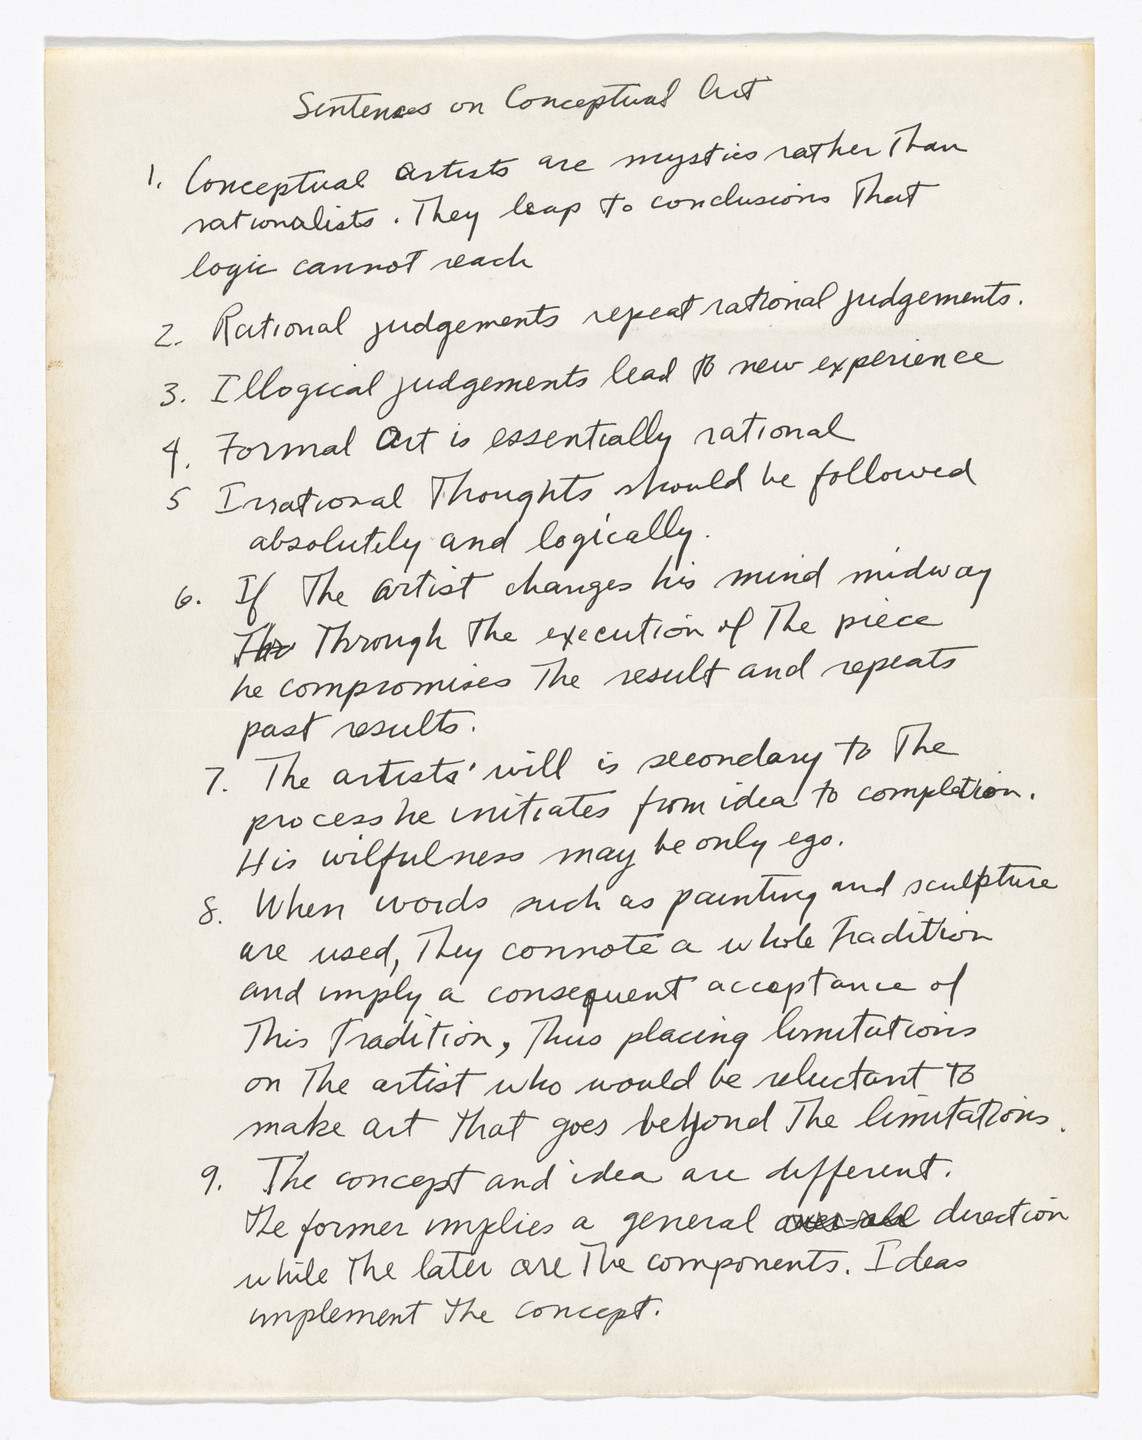 Sentences on Conceptual Art
1. Conceptual Artists are mystics rather Than
rationalists. They leap to conclusions That
logic cannot reach
2. Rational judgements repeat rational judgements.
3. Illogical judgements lead to new experience
4. Formal Art is essentially rational
5 Irrational Thoughts should be followed
absolutely and logically.
6. If The artist changes his mind midway
Thr Through The execution of The piece
he compromises The result and repeats
past results.
7. The artists' will is secondary to The
process he initiates from idea to completion.
His wilfulness may be only ego.
8. When words such as painting and sculpture
are used, They connote a whole Tradition
and imply a consequent acceptance of
This Tradition, Thus placing limitations
on The artist who would be reluctant to
make art that goes beyond The limitations.
9. The concept and idea are different.
The former implies a general over-all direction
while The later are The components. Ideas
implement the concept.